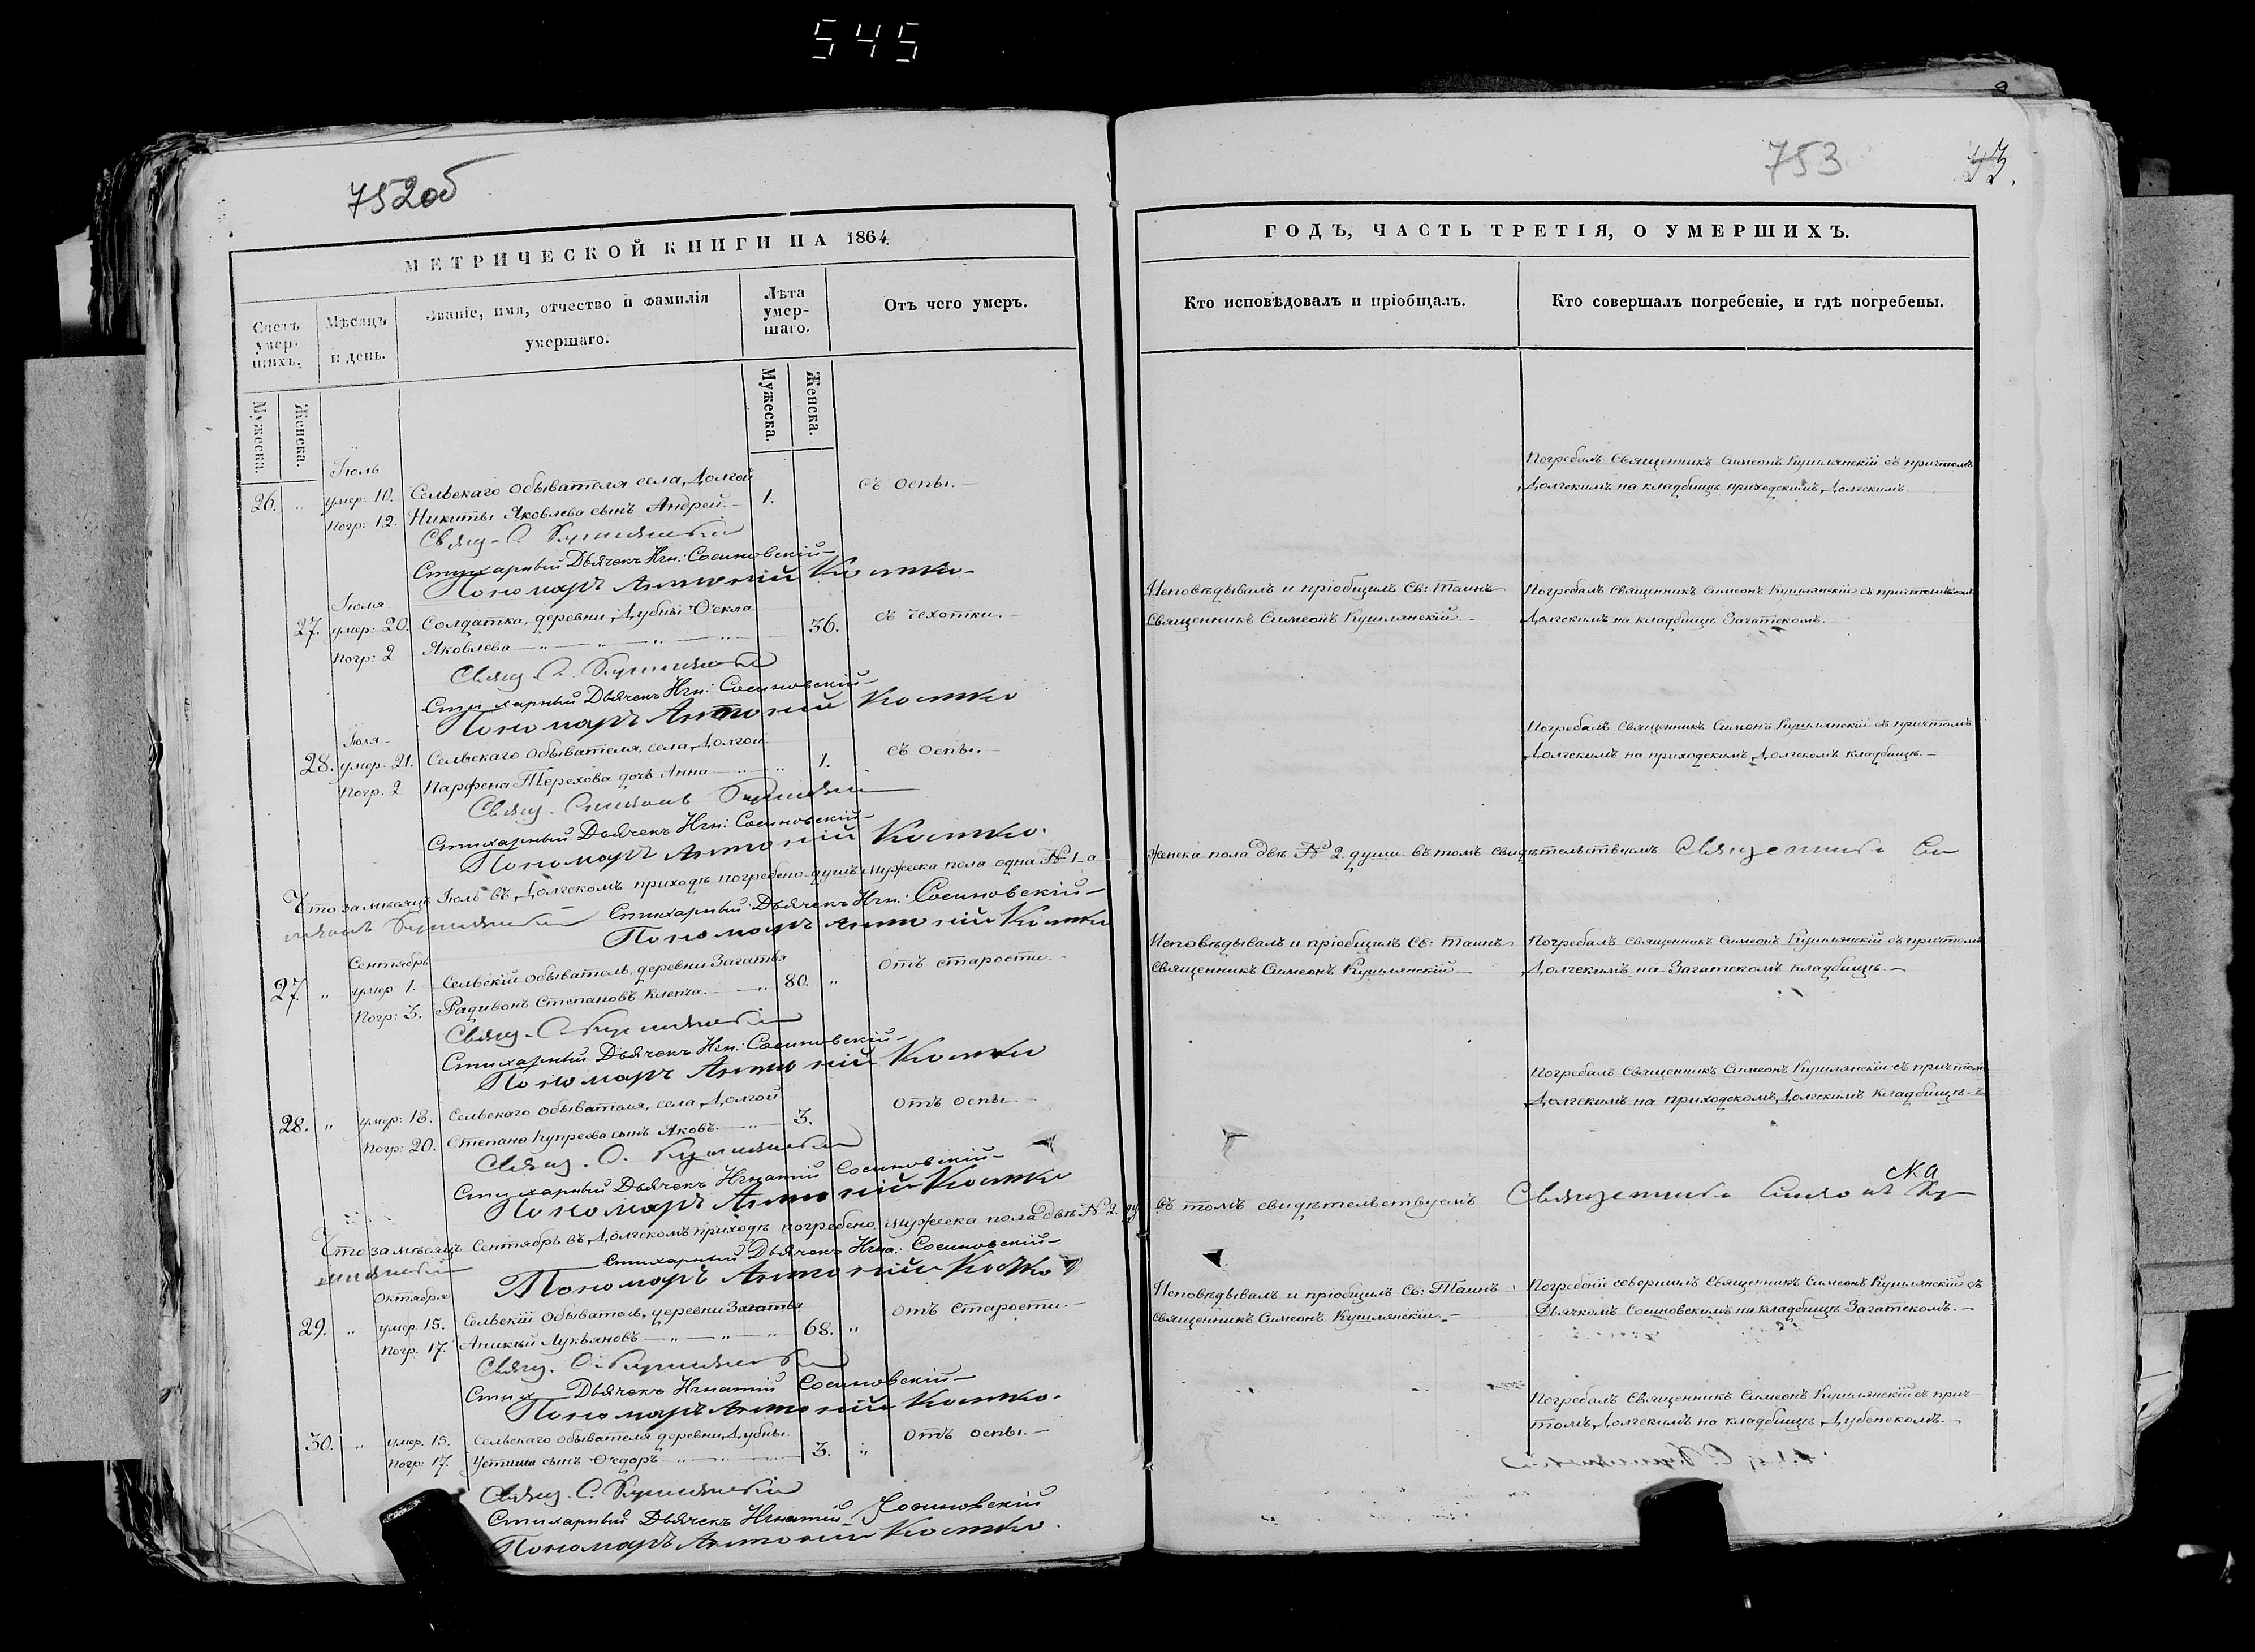 545
752об
МЕТРИЧЕСКОЙ КНИГИ НА 1864.
Счетъ умер- шихъ.
Мѣсяцъ и день.
Званіе, имя, отчество и фамилія умершаго.
Лѣта умер- шаго.
Отъ чего умеръ.
Мужеска.
Женска.
Мужеска.
Женска.
Іюль
26. " умер: 10. Сельскаго обывателя села, Долгой 1. съ оспы.
погр: 12. Никиты Яковлева сынъ Андрей.
Свящ. С. Кушлянскій
Стихарный Дьячекъ Игн: Сосиновскій
Пономарь Антоній Костко
Іюля
27. умер: 20. Солдатка, деревни, Дубны Ѳекла 36. съ чехотки.
погр: 2 Яковлева
Свящ. С. Кушлянскій
Стихарный Дьячекъ Игн: Сосиновскій
Пономарь Антоній Костко
Іюля
28. умер. 21. Сельскаго обывателя, села, Долгой 1. съ оспы.
погр. 2 Парфена Терехова дочь Анна
Свящ. Симеонъ Кушлянскій
Стихарный Дьячекъ Игн: Сосиновскій
Пономарь Антоній Костко.
Что за мѣсяцъ Іюль въ Долгскомъ приходѣ погребено душъ мужеска пола одна № 1-а
Кушлянскій Стихарный Дьячекъ Игн: Сосиновскій
Пономарь Антоній Костко
Сентябрь
27. " умер 1. Сельскій обыватель, деревни Загатья 80. " отъ старости.
погр: 3. Радивонъ Степановъ
Свящ. С. Кушлянскій
Стихарный Дьячекъ Игн: Сосиновскій
Пономарь Антоній Костко
28. " умер: 18. Сельскаго обывателя, села, Долгой 3. отъ оспы.
погр: 20. Степана Купреева сынъ Яковъ.
Свящ. С. Кушлянскій
Стихарный Дьячекъ Игнатій Сосиновскій
Пономарь Антоній Костко
Что за мѣсяцъ Сентябрь въ Долгскомъ приходѣ погребено мужеска пола двѣ № 2. ду
Стихарный Дьячекъ Игна: Сосиновскій
Пономарь Антоній Костко
Октября
29. " умер. 15. Сельскій обыватель, деревни Загатья 68. " отъ старости.
погр. 17. Аникѣй Лукьяновъ
Свящ. С. Кушлянскій
Стих Дьячекъ Игнатій Сосиновскій
Пономарь Антоній Костко.
30. " умер. 15. Сельскаго обывателя деревни, Дубны. 3. " отъ оспы.
погр: 17. Устина сынъ Ѳедоръ
Свящ. С. Кушлянскій
Стихарный Дьячекъ Игнатій Сосиновскій
Пономарь Антоній Костко.
753
ГОДЪ, ЧАСТЬ ТРЕТІЯ, О УМЕРШИХЪ.
Кто исповѣдовалъ и пріобщалъ.
Кто совершалъ погребеніе, и гдѣ погребены.
Погребалъ Священникъ Симеонъ Кушлянскій съ причтомъ
Долгскимъ на кладбищѣ приходскимъ, Долгскимъ
Исповѣдывалъ и пріобщилъ Св: Таинъ
Священникъ Симеонъ Кушлянскій
Погребалъ Священникъ Симеонъ Кушлянскій съ причтомъ
Долгскимъ на кладбищѣ Загатскомъ.
Погребалъ Священникъ Симеонъ Кушлянскій съ причтомъ
Долгскимъ на приходскимъ, Долгскомъ кладбищѣ.
Женска пола двѣ № 2 души въ томъ свидѣтельствуемъ Священникъ Си
Исповѣдывалъ и пріобщилъ Св: Таинъ
Священникъ Симеонъ Кушлянскій
Погребалъ Священникъ Симеонъ Кушлянскій съ причтомъ
Долгскимъ на Загатскомъ кладбищѣ.
Погребалъ Священникъ Симеонъ Кушлянскій съ причтом
Долгскимъ на приходскомъ, Долгскимъ кладбищѣ.
въ томъ свидѣтельствуемъ Священникъ Симеонъ Ку
Исповѣдывалъ и пріобщилъ Св: Таинъ
Священникъ Симеонъ Кушлянскій.
Погребеніе совершилъ Священникъ Симеонъ Кушлянскій съ
Дьячкомъ Сосиновскимъ на кладбищѣ Загатскомъ.
Погребалъ Священникъ Симеонъ Кушлянскій съ прич-
томъ, Долгскимъ на кладбищѣ, Дубенскомъ.